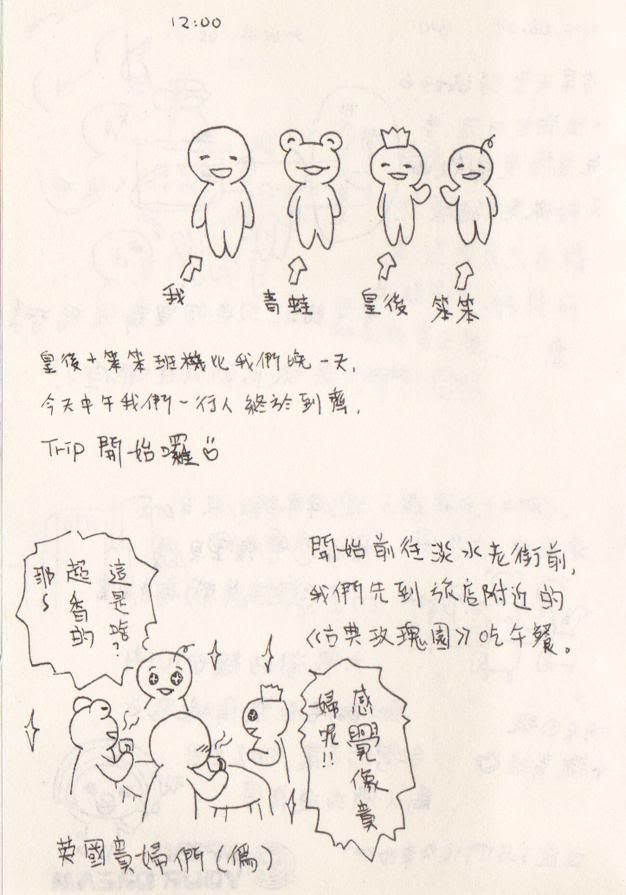 12:00
我
青蛙
皇後
笨笨
皇後+笨笨班機比我們晚一天,
今天中午我們一行人終於到齊,
Trip 開始囉
開始前往淡水老街前,
我們先到旅店附近的
《古典玫瑰園》吃午餐。
這是啥?
超香的
耶~
感覺像貴
婦呢!!
英國貴婦們(偽)